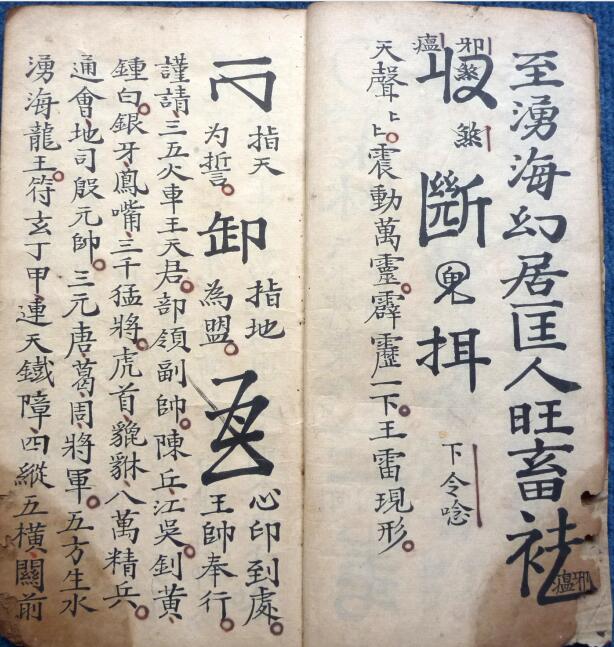 至湧海幻居匡人旺畜祛邪瘟
收邪煞瘟煞斷鬼挕下令唸
天聲卜卜震動萬靈霹靂一下王雷現形
指天为誓卸指地為盟心印到處王帥奉行
謹請三五火車王天君部領副帥陳乒江吳釗黃
鍾白銀牙鳳嘴三千猛將虎首貔貅八萬精兵
通會地司殷元帥三元唐葛周將軍五方生水
湧海龍王符玄丁甲連天鐵障四縱五橫關前